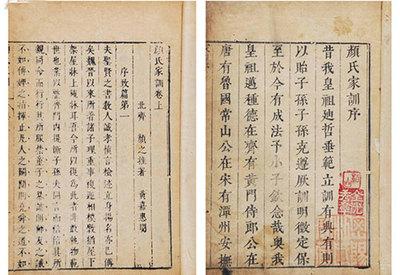 顏氏家訓序
昔我皇祖廸哲垂範立訓有典有則
以貽子孫子孫克遵厥訓明徵定保
至於今有成法予小子欽念哉奧我
皇祖邁種德在齊有黃門侍郎公在
唐有魯國常山公在宋有潭州安撫
顏氏家訓卷上
北齊 顏之推著 黃嘉惠閱
序致篇第一
夫聖賢之書教人誠孝慎言檢迹立身揚名亦已備
矣魏晉以來所著諸子理重事複遞相模斆猶屋下
架屋牀上施牀耳吾今所以復爲此者非敢軌物範
世也業以整齊門內提撕子孫夫同言而信信其所
親同命而行行其所服禁童子之暴謔則師友之誡
不如傅婢之指揮止凡人之鬬鬩則堯舜之道不如